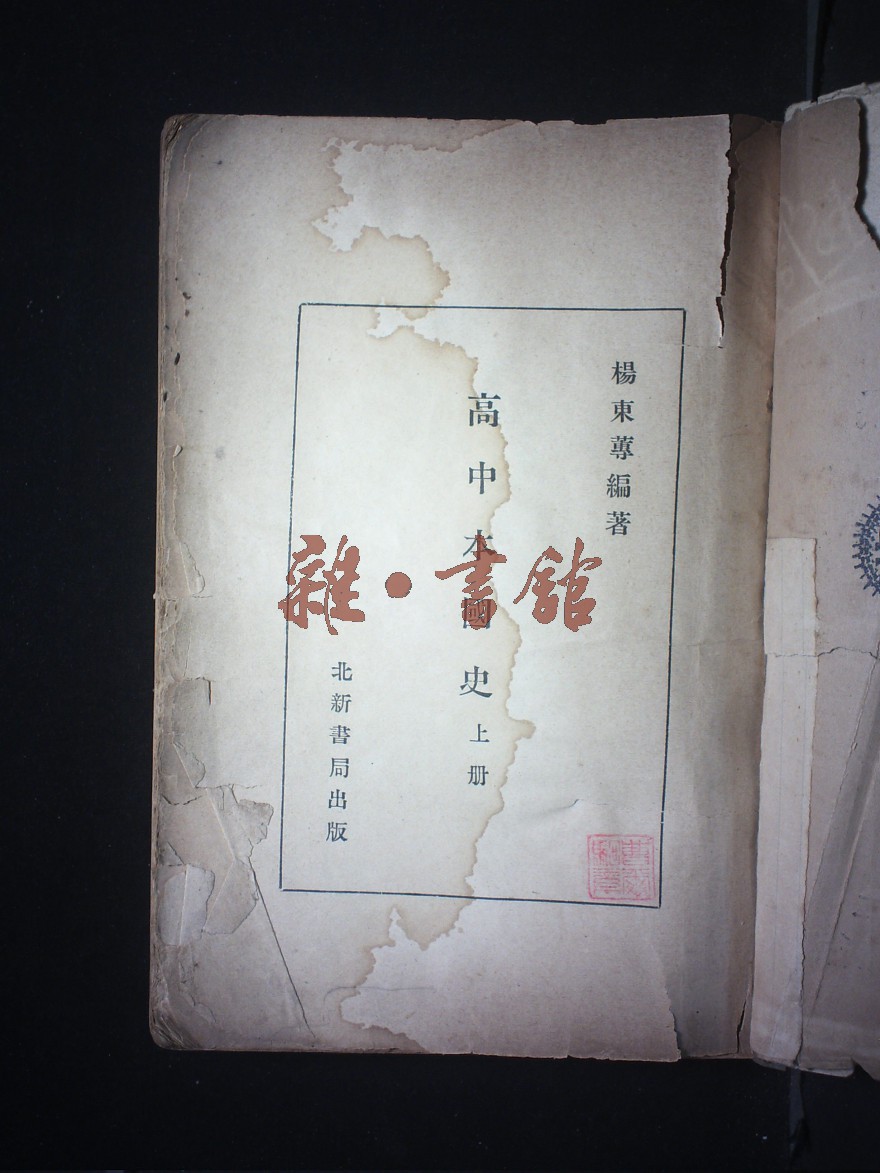 楊東蓴編著
高中本國史 上册
北新書局出版
雜·書館